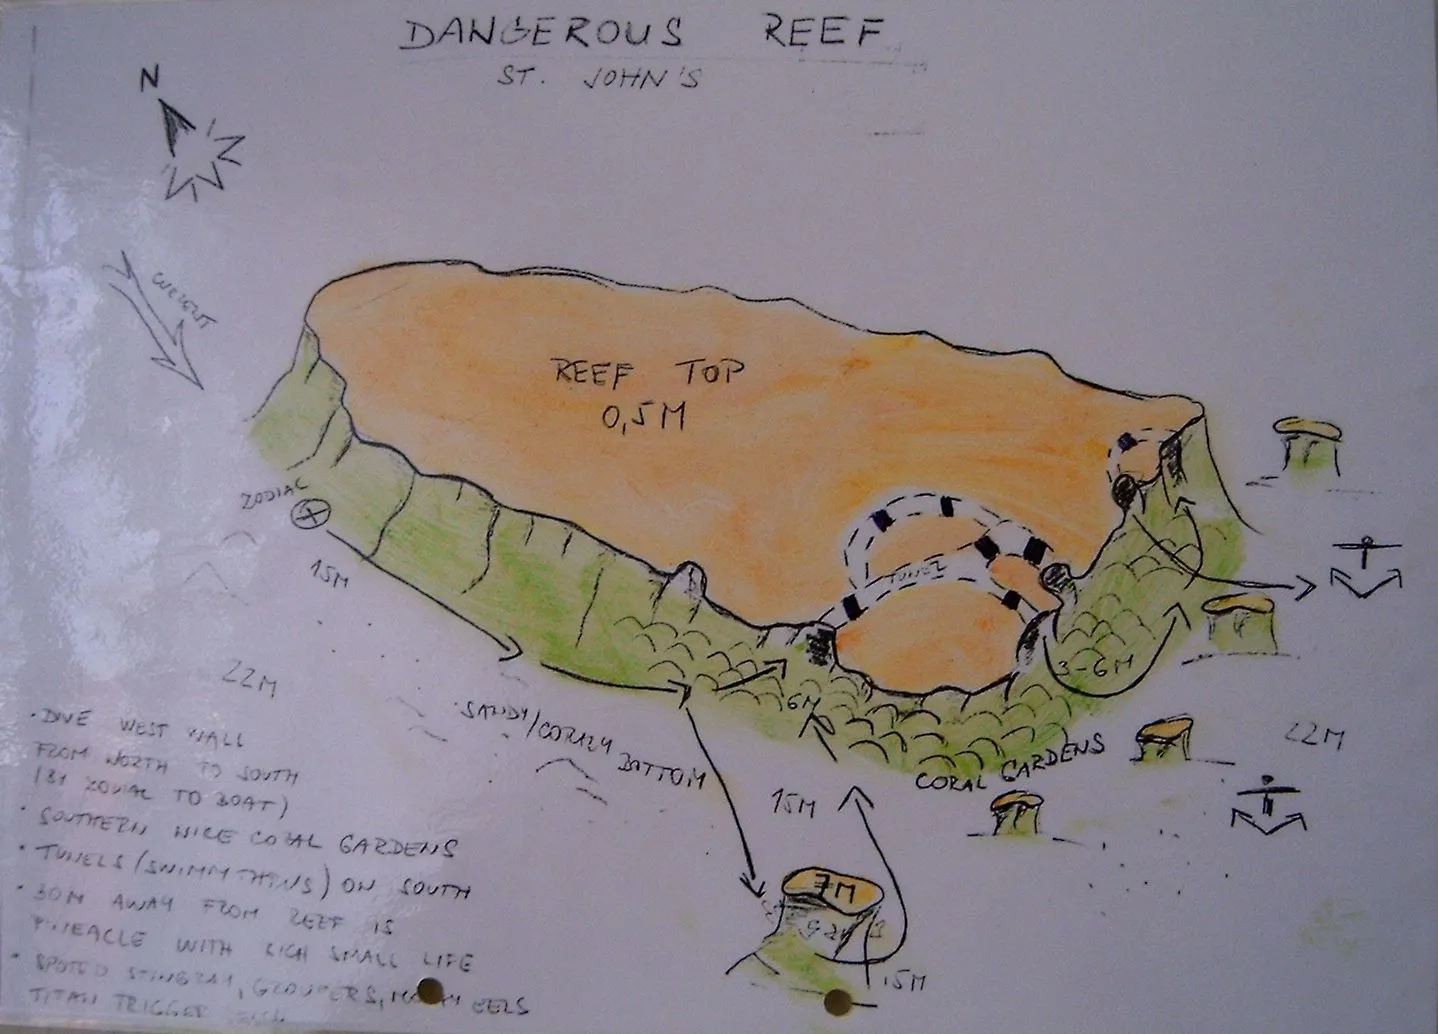 DANGEROUS REEF
ST. JOHN'S
N
REEF TOP
0,5M
ZODIAC
15M
TUNEL
3-6M
6M
22M
SANDY/CORALY BOTTOM
CORAL GARDENS
22M
15M
7M
15M
• DIVE WEST WALL
FROM NORTH TO SOUTH
(BY ZODIAC TO BOAT)
• SOUTHERN NICE CORAL GARDENS
• TUNELS/(SWIMMTHRUS) ON SOUTH
• 30M AWAY FROM REEF IS
PINEACLE WITH RICH SMALL LIFE
• SPOTED STINGRAY, GROUPERS, MORAY EELS
TITAN TRIGGER